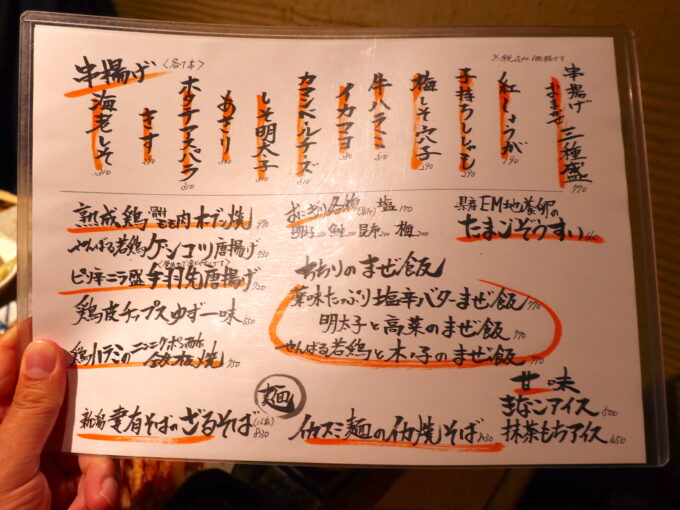 串揚げ〈各1本〉
※税込み価格です
串揚げ おまかせ 三種盛 770
紅しょうが 190
子持ちししゃも 290
梅しそ穴子 290
牛ハラミ 310
イカマヨ 280
カマンベールチーズ 310
しそ明太子 310
あさり 280
ホタテアスパラ 310
きす 290
海老しそ 310
熟成鶏もも肉オーブン焼
やんばる若鶏ゲンコツ唐揚げ
ピリ辛ニラ盛手羽先唐揚げ
鶏皮チップスゆず一味
鶏ハラミのニンニクポン酢 鉄板焼
おにぎり各種 塩 170
明太子 鮭 昆布 梅
EM地養卵の
たまごぞうすい
ちおりのまぜ飯
薬味たっぷり塩辛バターまぜ飯 770
明太子と高菜のまぜ飯 770
やんばる若鶏と木の子のまぜ飯 770
麺
新潟妻有そばのざるそば(1人前) 830
イカスミ麺のイカ焼そば 830
甘味
きなこアイス 500
抹茶もちアイス 450